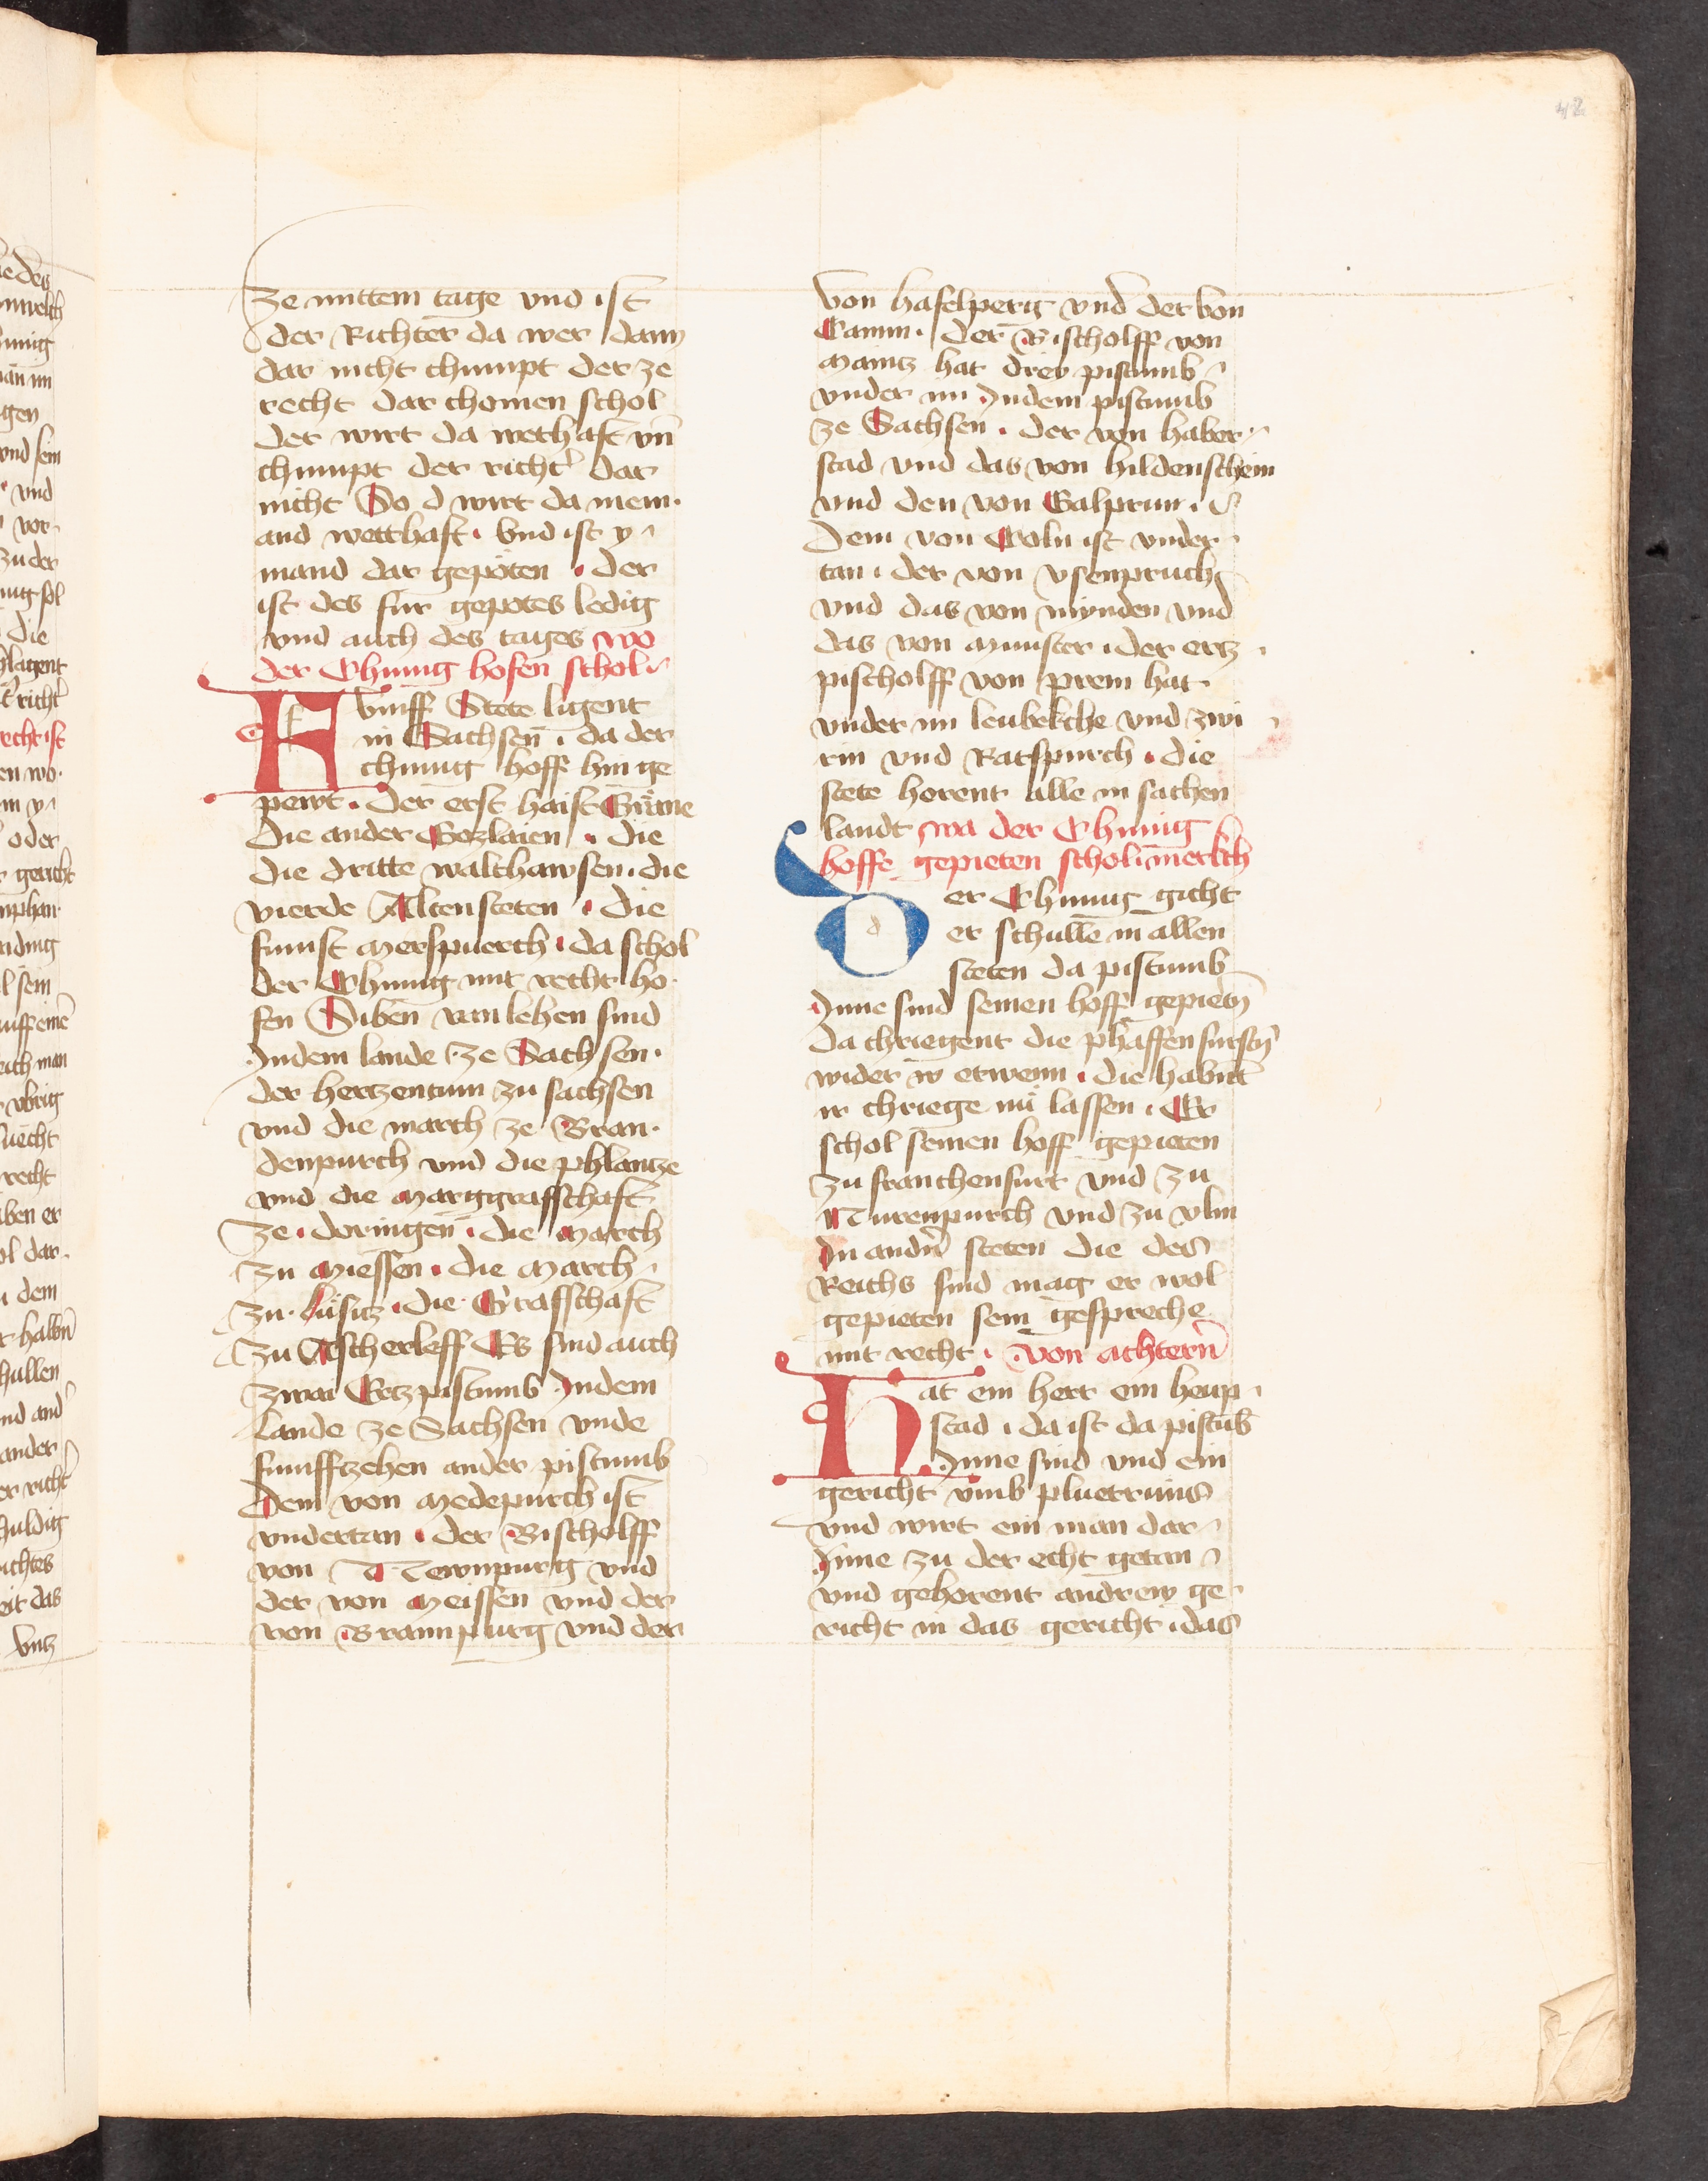 42
ze mittem tage vnd ist
der Richter da wer dann
dar nicht chumpt der ze
recht dar chomen schol
der wirt da wethaft vn̄
chumpt der richt͛ dar
nicht So d wirt da niem·
and wetthaft · Vnd ist y
mand dar gepoten · der
ist des fur gepotes ledig
vnd auch des tages wo
der Chunig hofen schol
Fvmff Stete ligent
in Sachsen · da der
chunig hoff hin ge
pewt · Der erst haist Grüne
Die ander Gozlaien · die
die dritte walthawsen · die
vierde Altensteten · die
funfft Merspuerch · da schol
der Chunig mit recht ho·
fen Siben vanlehen sind
Indem lande ze Sachsen ·
der hertzentum zu sachsen
vnd die march ze Bran·
denpurch vnd die phlantze
vnd die Marggraffschaft
ze · doringen · die March
zu Miessen · die March
zu · Lusitz · die · Graffschaft
zu Ascherleff Es sind auch
zwai Ertzpistumb Indem
Lande ze Sachsen vnde
funfftzehen ander pistumb
Dem von Medepurch ist
vndertan · der Bischolff
von Newnpurg vnd
der von Meissen vnd der
von Brannpurg vnd der
von haselperg vnd der von
Camin · der Bischolff von
Maintz hat drey pistumb
vnder im Indem pistumb
ze Sachsen · der von haber
stad vnd das von hildenschein
vnd den von Galprun ·
Dem von Coln ist vnder
tan · der von vsenpruch
vnd das von mynden vnd
das von Munster · der ertz
pischolff von prem hat
vnder im leubekche vnd zwi
rin vnd Ratspurch · die
stete horent alle in sachen
landt wa der Chunig
hoffe gepieten schol · merkch
Der Chunig gicht
er schulle in allen
steten da pistumb
Inne sind seinen hoff gepietn̄
da chriegent die phaffen furstn̄
wider in etwenn · die habnt
ir chriege nu lassen · Er
schol seinen hoff gepieten
zu franchenfurt vnd zu
Nurenpurch vnd zu vlm
In andn̄ steten die des
Reichs sind mag er wol
gepieten sein gespreche
mit recht · von achtern̄
Hat ein herr ein haup
stad · da ist da pistub
Inne sind vnd ein
gericht vmb pluetrunß
vnd wirt ein man dar
Inne zu der echt getan
vnd gehorent andrew ge
richt in das gericht · das